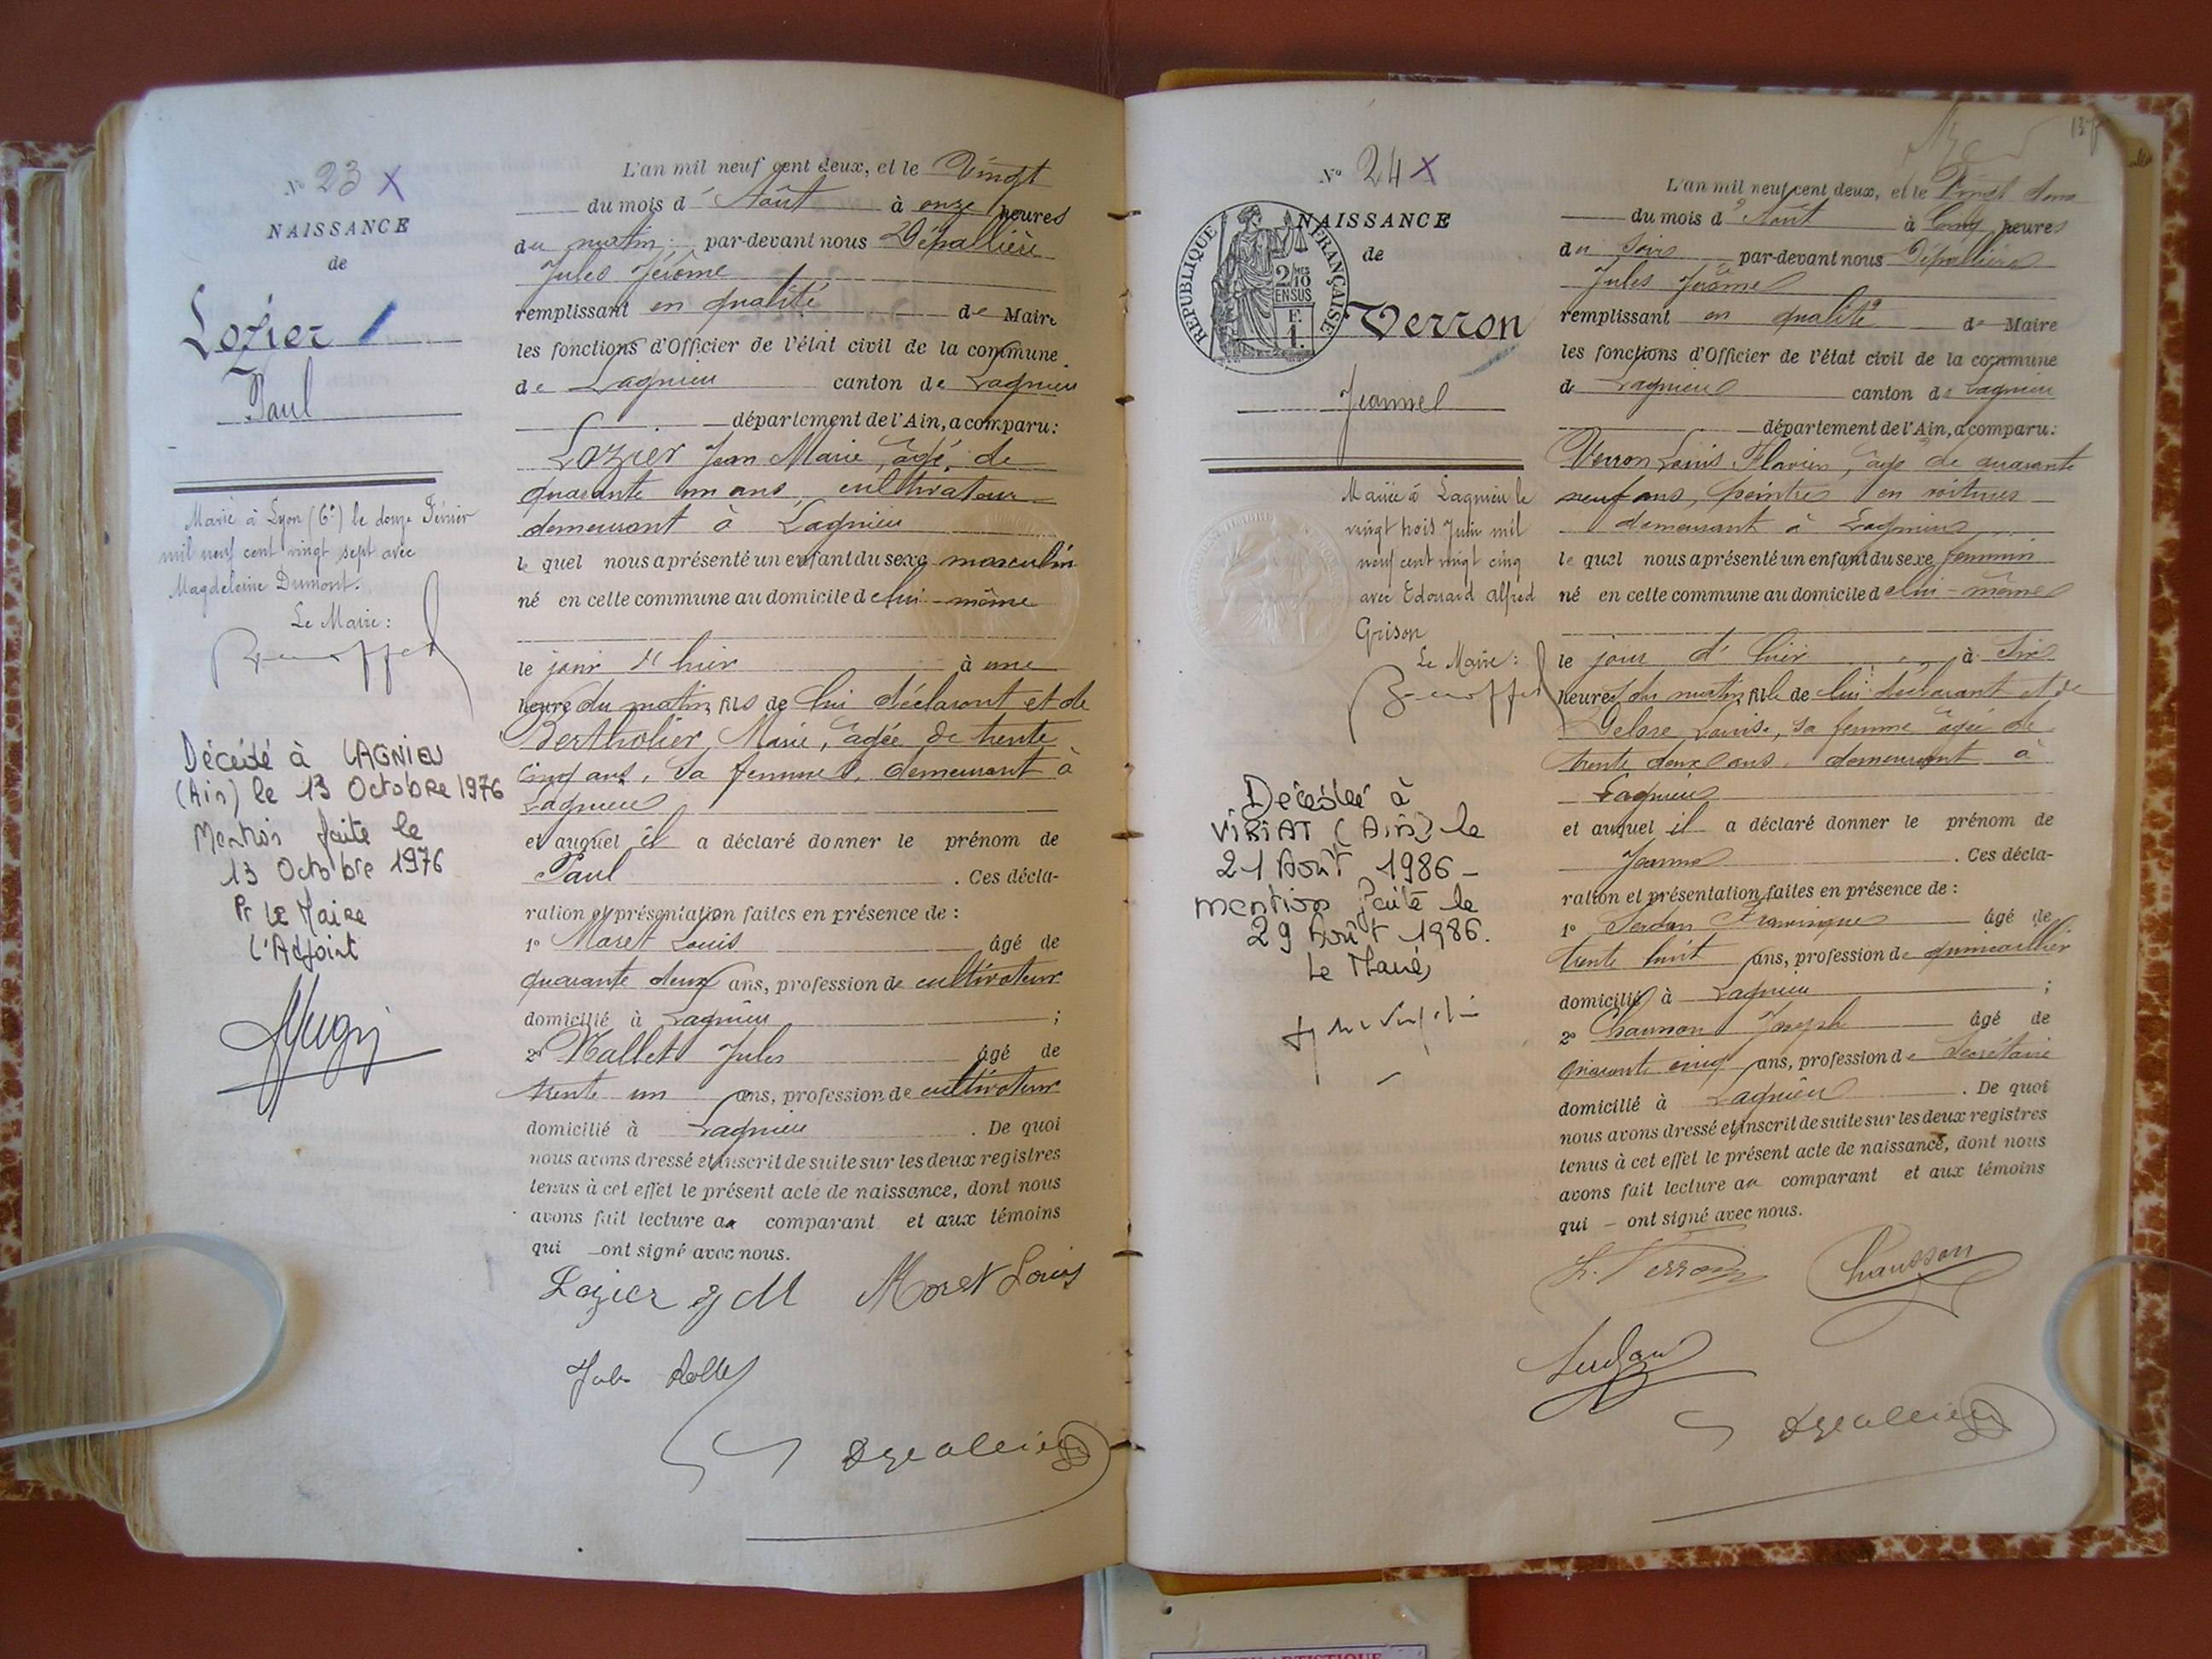 N° 23 X
NAISSANCE
de
Lozier
Paul
Marié à Lyon (6e) le douze Février
mil neuf cent vingt sept avec
Magdeleine Dumont.
Le Maire :
Décédé à LAGNIEU
(Ain) le 13 Octobre 1976
Mention faite le
13 Octobre 1976
Pr LE Maire
L'Adjoint
L'an mil neuf cent deux, et le Vingt
du mois d' Août à onze heures
du matin par-devant nous Dépallière
Jules Jérôme
remplissant en qualité de Maire
les fonctions d'Officier de l'état civil de la commune
de Lagnieu canton de Lagnieu
département de l'Ain, a comparu :
Lozier Jean Marie, âgé de
quarante un ans, cultivateur
demeurant à Lagnieu
le quel nous a présenté un enfant du sexe masculin
né en cette commune au domicile de lui-même
le jour d'hier à une
heure du matin, fils de lui déclarant et de
Bertholier, Marie, âgée de trente
cinq ans, sa femme, demeurant à
Lagnieu
et auquel il a déclaré donner le prénom de
Paul . Ces décla-
ration et présentation faites en présence de :
1° Moret Louis âgé de
quarante deux ans, profession de cultivateur
domicilié à Lagnieu ;
2° Mallet Jules âgé de
trente un ans, profession de cultivateur
domicilié à Lagnieu . De quoi
nous avons dressé et inscrit de suite sur les deux registres
tenus à cet effet le présent acte de naissance, dont nous
avons fait lecture au comparant et aux témoins
qui ont signé avec nous.
Lozier J M Moret Louis
N° 24 X
NAISSANCE
de
REPUBLIQUE FRANÇAISE
2/10 MES
EN SUS
F.
1.
Verron
Jeanne
Mariée à Lagnieu le
vingt trois Juin mil
neuf cent vingt cinq
avec Edouard Alfred
Grison
Le Maire :
Décédée à
VIRIAT (Ain) le
21 Août 1986 -
mention faite le
29 Août 1986.
Le Maire,
L'an mil neuf cent deux, et le Vingt deux
du mois d' Août à Cinq heures
du soir par-devant nous Dépallière
Jules Jérôme
remplissant en qualité de Maire
les fonctions d'Officier de l'état civil de la commune
de Lagnieu canton de Lagnieu
département de l'Ain, a comparu :
Verron Louis Flavien, âgé de quarante
neuf ans, peintre en voitures
demeurant à Lagnieu
le quel nous a présenté un enfant du sexe féminin
né en cette commune au domicile de lui-même
le jour d'hier à Six
heures du matin, fille de lui déclarant et de
Louise, sa femme âgée de
trente deux ans demeurant à
Lagnieu
et auquel il a déclaré donner le prénom de
Jeanne . Ces décla-
ration et présentation faites en présence de :
1° âgé de
trente huit ans, profession de quincaillier
domicilié à Lagnieu ;
2° Chausson Joseph âgé de
quarante cinq ans, profession de Secrétaire
domicilié à Lagnieu . De quoi
nous avons dressé et inscrit de suite sur les deux registres
tenus à cet effet le présent acte de naissance, dont nous
avons fait lecture au comparant et aux témoins
qui – ont signé avec nous.
L. Verron Chausson